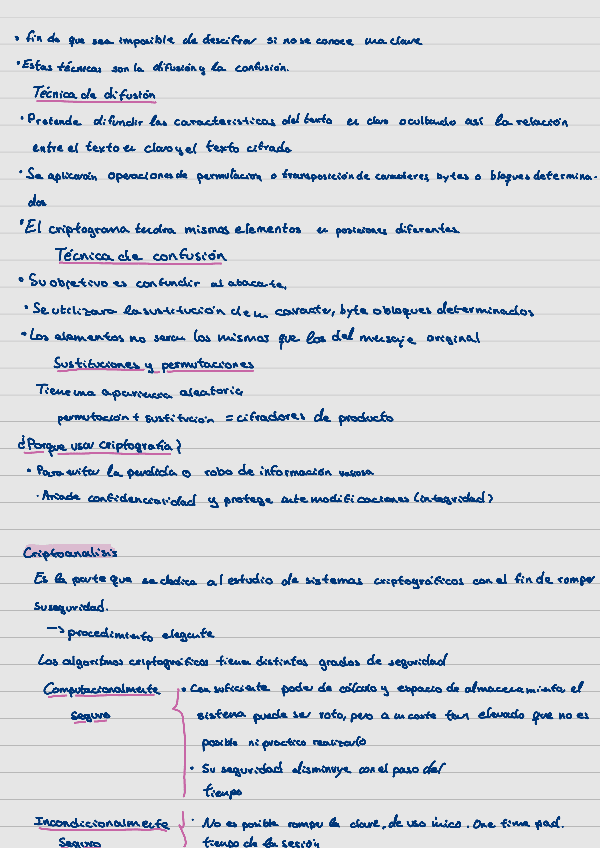 • fin de que sea imposible de descifrar si no se conoce una clave
• Estas técnicas son la difusión y la confusión.
Técnica de difusión
• Pretende difundir las características del texto en claro ocultando así la relación
entre el texto en claro y el texto cifrado
• Se aplicarán operaciones de permutación o transposición de caracteres, bytes o bloques determina-
dos
• El criptograma tendra mismos elementos en posiciones diferentes
Técnica de confusión
• Su objetivo es confundir al atacante,
• Se utilizara la sustitución de un caracter, byte o bloques determinados
• Los elementos no seran los mismos que los del mensaje original
Sustituciones y permutaciones
Tiene una apariencia aleatoria
permutación + sustitución = cifradores de producto
¿Porque usar criptografía?
• Para evitar la perdida o robo de información valiosa
• Añade confidencialidad y protege ante modificaciones (integridad)
Criptoanalisis
Es la parte que se dedica al estudio de sistemas criptográficos con el fin de romper
su seguridad.
→ procedimiento elegante
Los algoritmos criptográficos tienen distintos grados de seguridad
Computacionalmente • Con suficiente poder de cálculo y espacio de almacenamiento el
seguro sistema puede ser roto, pero a un coste tan elevado que no es
posible ni practico realizarlo
• Su seguridad disminuye con el paso del
tiempo
Incondicionalmente • No es posible romper la clave, de uso único. One time pad.
Seguro tiempo de la sesión